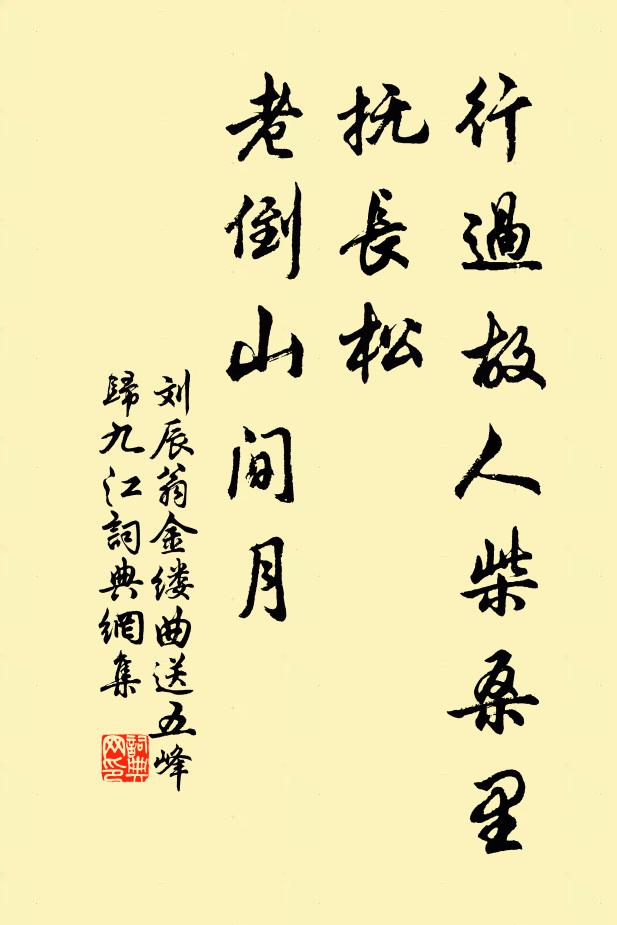 行過故人柴桑里
抚長松
老倒山間月
刘辰翁金缕曲送五峰
歸九江詞典網集
詞典
网印